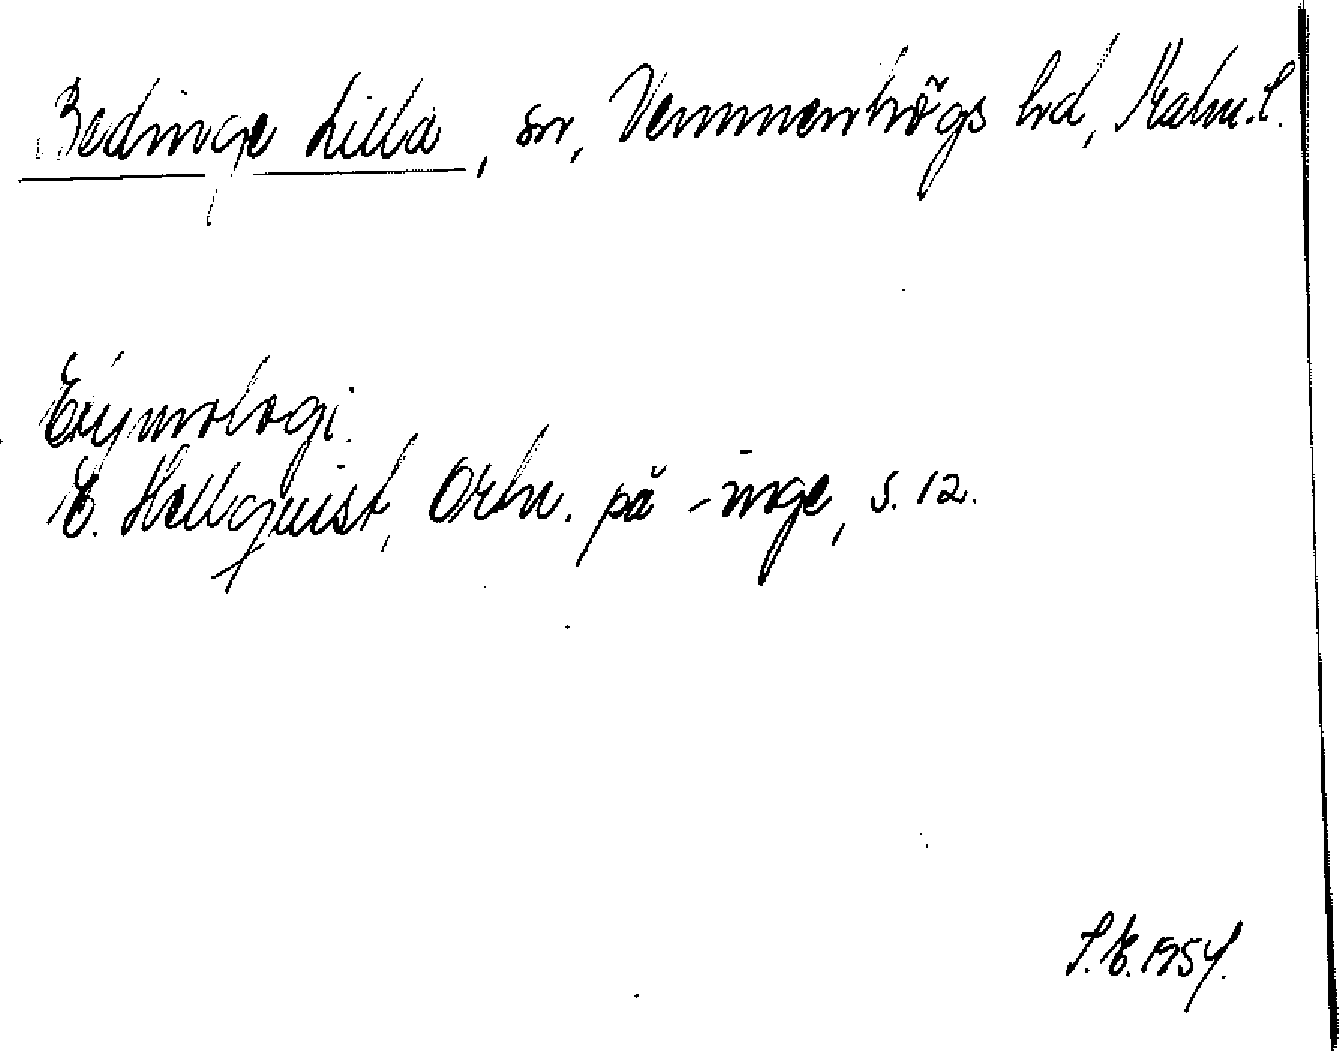 Beddinge Lilla, sn, Vemmenhögs hd, Malm. l.
Etymologi.
E. Hellquist, Ortn. på -inge, s. 12.
S.E. 1954.